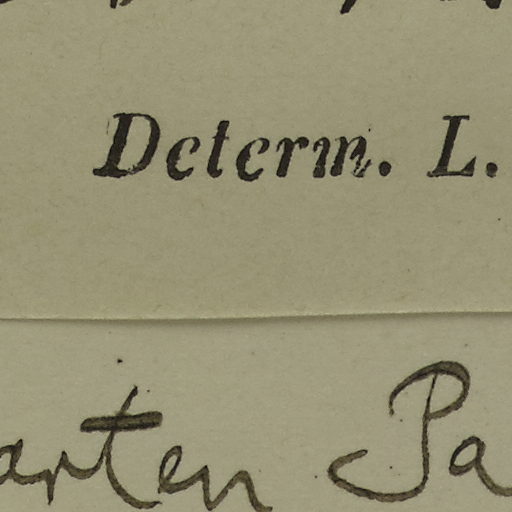 Determ. L.
arten Pa